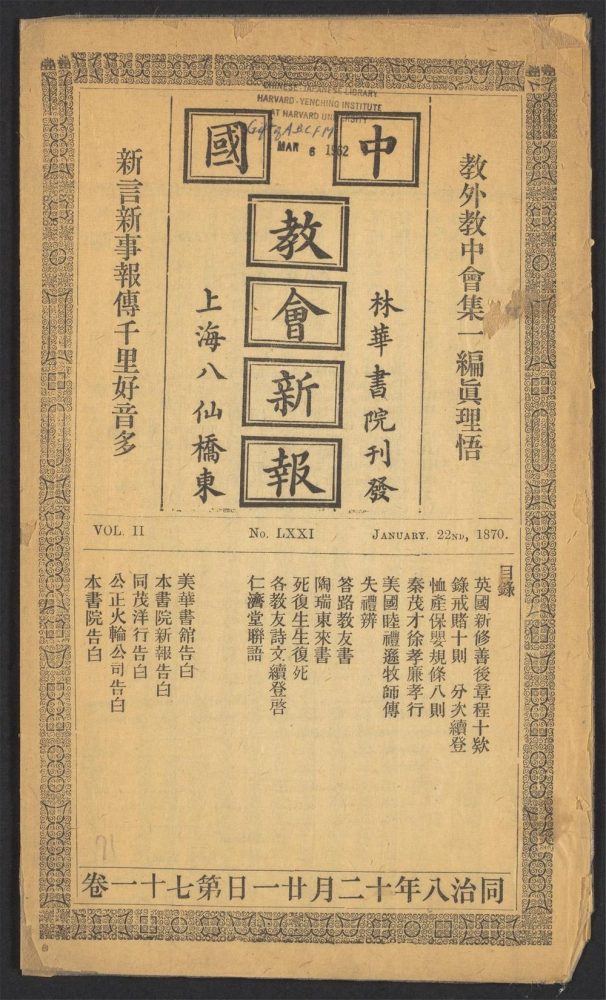 CHINESE-JAPANESE LIBRARY
HARVARD-YENCHING INSTITUTE
AT HARVARD UNIVERSITY
MAR 6 1962
中國
教會新報
教外教中會集一編眞理悟
林華書院刊發
上海八仙橋東
新言新事報傳千里好音多
VOL. II No. LXXI JANUARY. 22ND, 1870.
目錄
英國新修善後章程十欵
錄戒賭十則 分次續登
恤產保嬰規條八則
秦茂才徐孝廉孝行
美國睦禮遜牧師傳
失禮辨
答路教友書
陶瑞東來書
死復生生復死
各教友詩文續登啓
仁濟堂聯語
美華書館告白
本書院新報告白
同茂洋行告白
公正火輪公司告白
本書院告白
71
同治八年十二月廿一日第七十一卷